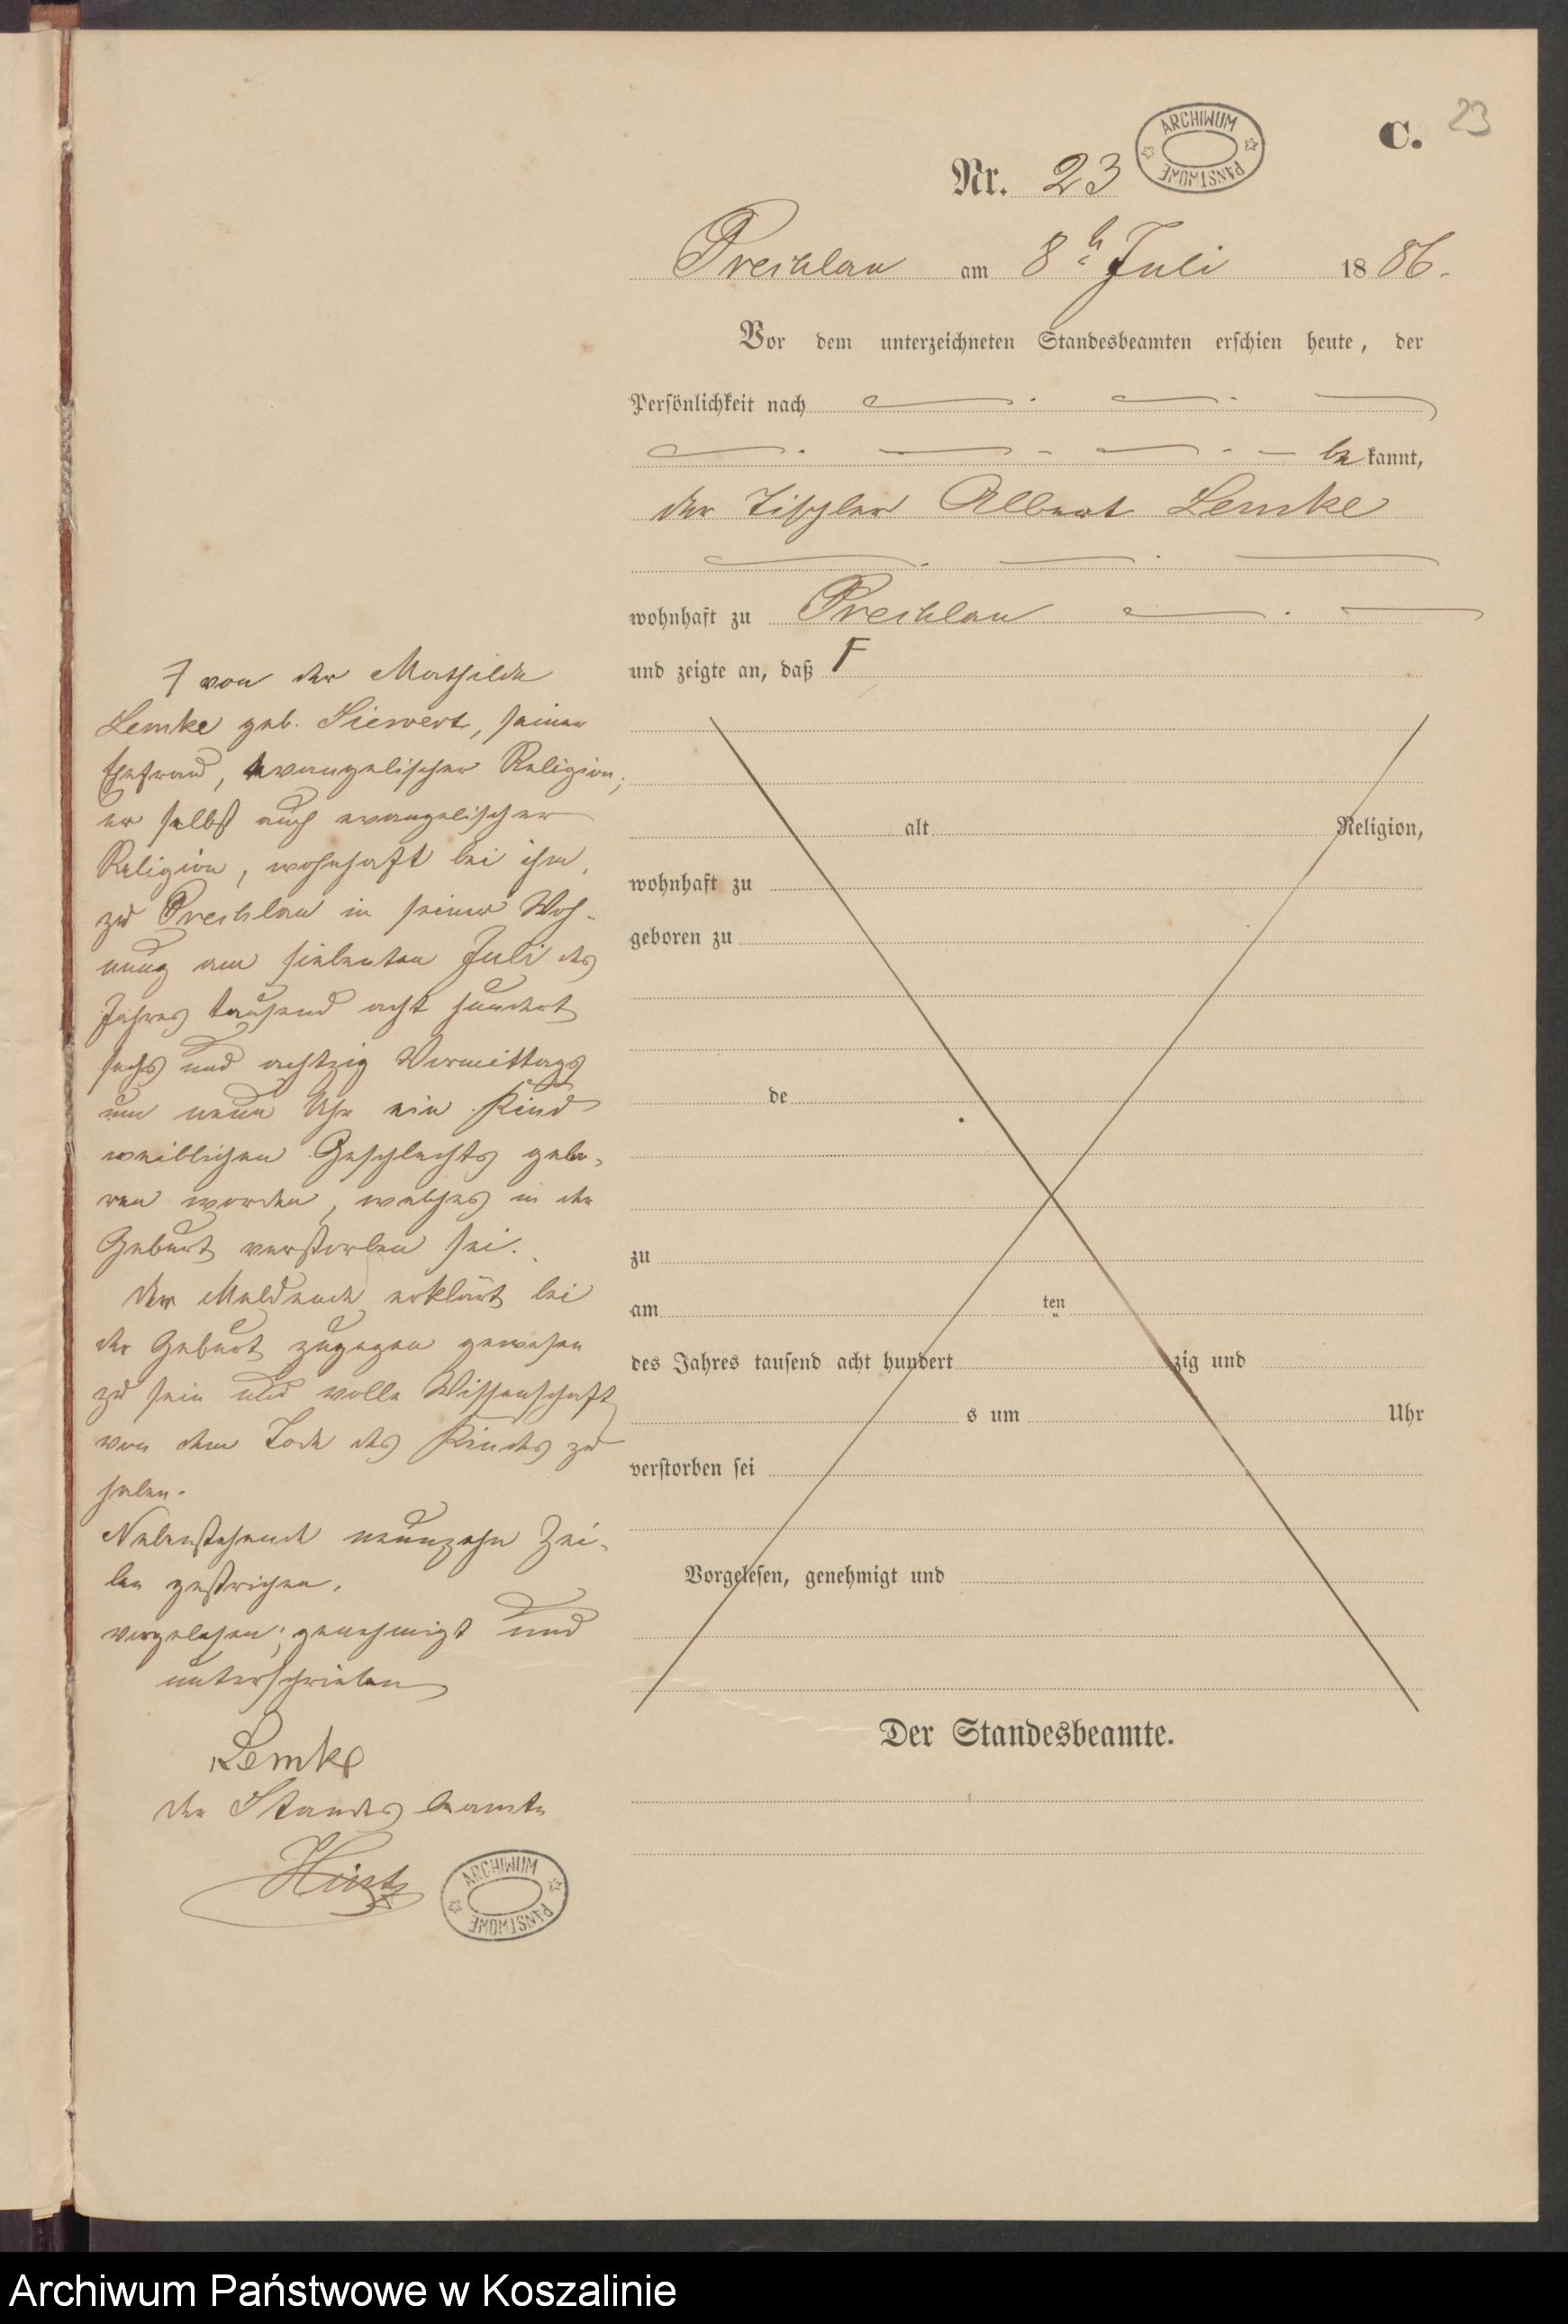 C. 23
ARCHIWUM PAŃSTWOWE
Nr. 23
am 8 Juli 1886.
Vor dem unterzeichneten Standesbeamten erschien heute, der
Persönlichkeit nach
bekannt,
der Tischler Albert Lemke
wohnhaft zu
und zeigte an, daß F
alt Religion,
wohnhaft zu
geboren zu
de
zu
am ten
des Jahres tausend acht hundert zig und
s um Uhr
verstorben sei
Vorgelesen, genehmigt und
Der Standesbeamte.
F von der Mathilde
Lemke geb. Siewert, seiner
Ehefrau, evangelischer Religion,
er selbst auch evangelischer
Religion, wohnhaft bei ihm,
zu in seiner Woh-
nung am siebenten Juli des
Jahres tausend acht hundert
sechs und achtzig Vormittags
um neun Uhr ein Kind
weiblichen Geschlechts gebo-
ren worden, welches in der
Geburt verstorben sei.
Der Meldende erklärt bei
der Geburt zugegen gewesen
zu sein und volle Wissenschaft
von dem Tode des Kindes zu
haben.
Nebenstehende neunzehn Zei-
len gestrichen.
vorgelesen, genehmigt und
unterschrieben
Lemke
der Standesbeamte
ARCHIWUM PAŃSTWOWE
Archiwum Państwowe w Koszalinie